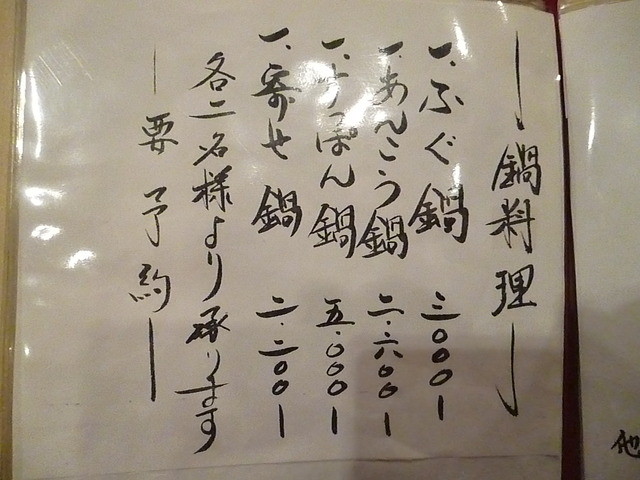 ｜鍋料理｜
一、ふぐ鍋 三〇〇〇ー
一、あんこう鍋 二・六〇〇ー
一、すっぽん鍋 五・〇〇〇ー
一、寄せ鍋 二・二〇〇ー
各二名様より承ります
｜要予約｜
他